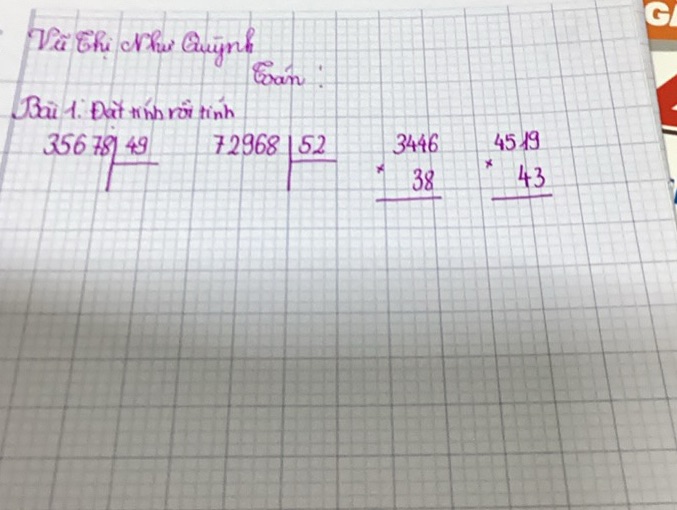 Vũ Thị Như Quỳnh
Toán :
Bài 1: Đặt tính rồi tính
35678 49 72968 52 3446 4519
× 38 × 43
GA